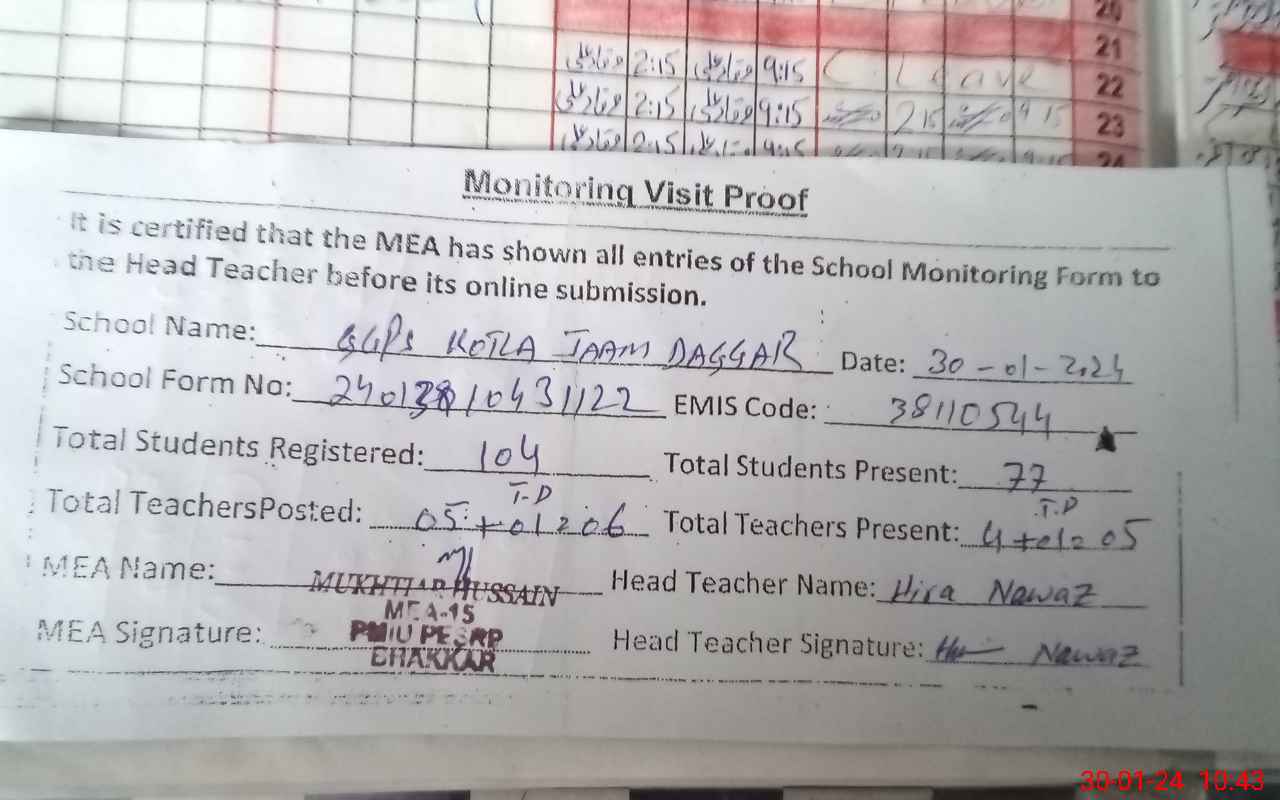 20
21
2:15 9:15 C. Leave 22
2:15 9:15 215 9 15 23
2:15 24
Monitoring Visit Proof
It is certified that the MEA has shown all entries of the School Monitoring Form to
the Head Teacher before its online submission.
School Name: GGPS KOTLA JAAM DAGGAR Date: 30-01-2024
School Form No: EMIS Code: 38110544
Total Students Registered: 104 Total Students Present: 77
T.D T.D
Total TeachersPosted: 05+01=06 Total Teachers Present: 4+01=05
MEA Name: MUKHTIAR HUSSAIN Head Teacher Name: Hira Nawaz
MEA-15
MEA Signature: PMIU PESRP Head Teacher Signature: Nawaz
BHAKKAR
30-01-24 10:43